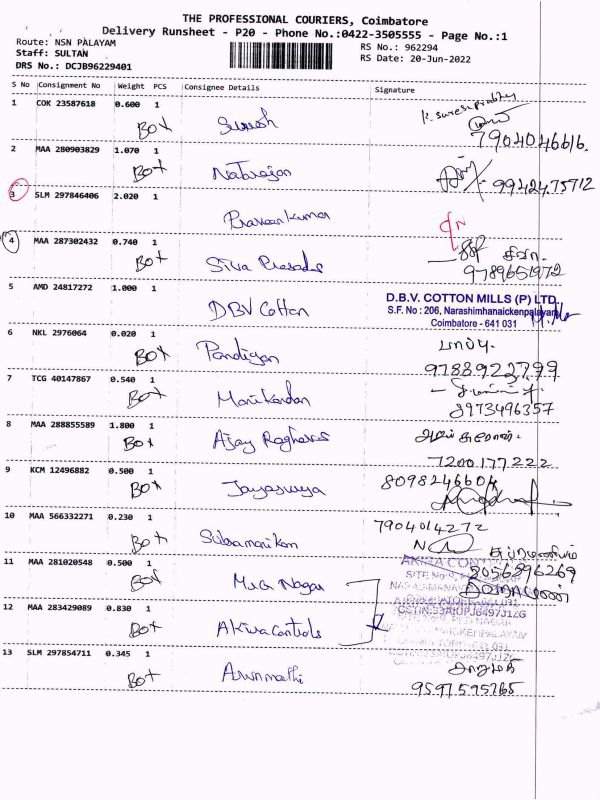 THE PROFESSIONAL COURIERS, Coimbatore
Delivery Runsheet - P20 - Phone No.:0422-3505555 - Page No.:1
Route: NSN PALAYAM
Staff: SULTAN
DRS No.: DCJB96229401
RS No.: 962294
RS Date: 20-Jun-2022
S No Consignment No Weight PCS Consignee Details Signature
1 COK 23587618 0.600 1
Box Suresh
7904046616.
2 MAA 280903829 1.070 1
Box Natarajan 9942475712
3 SLM 297846406 2.020 1
Praveen kumar
4 MAA 287302432 0.740 1
Box Siva Prasadu சிவா.
9789651972
5 AMD 24817272 1.000 1
DBV Cotton
D.B.V. COTTON MILLS (P) LTD
S.F. No : 206, Narashimhanaickenpalayam
Coimbatore - 641 031
6 NKL 2976064 0.020 1
Box Pandiyan
9788922799
7 TCG 40147867 0.540 1
Box Manikandan
8973496357
8 MAA 288855589 1.800 1
Box Ajay Raghavas
7200177222
9 KCM 12496882 0.500 1
Box Jayasurya 8098246604
10 MAA 566332271 0.230 1
Box Subramanikam 7904014272
சுப்ரமணியம்
11 MAA 281020548 0.500 1
Box MGR Nagar 8056896269
AKIRA CONTROLS
12 MAA 283429089 0.830 1
Box Akira Controls
13 SLM 297854711 0.345 1
Box Arunmathi
9597595765